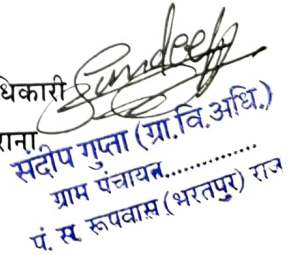 धिकारी Sundeep
राना
संदीप गुप्ता (ग्रा.वि.अधि.)
ग्राम पंचायत...............
पं. स. रूपवास (भरतपुर) राज